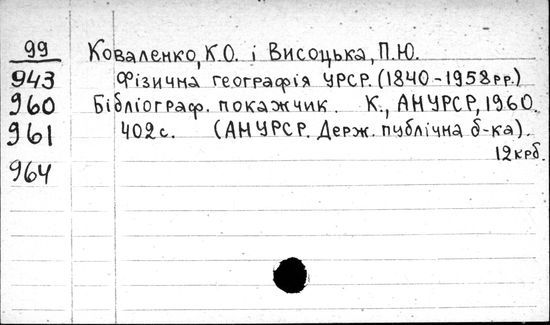 99 Коваленко, К.О. і Висоцька, П.Ю.
943 Фізична географія УРСР. (1840-1958рр.)
960 Бібліограф. покажчик. К., АН УРСР, 1960.
961 402 с. (АН УРСР. Держ. публічна б-ка).
12 крб.
964